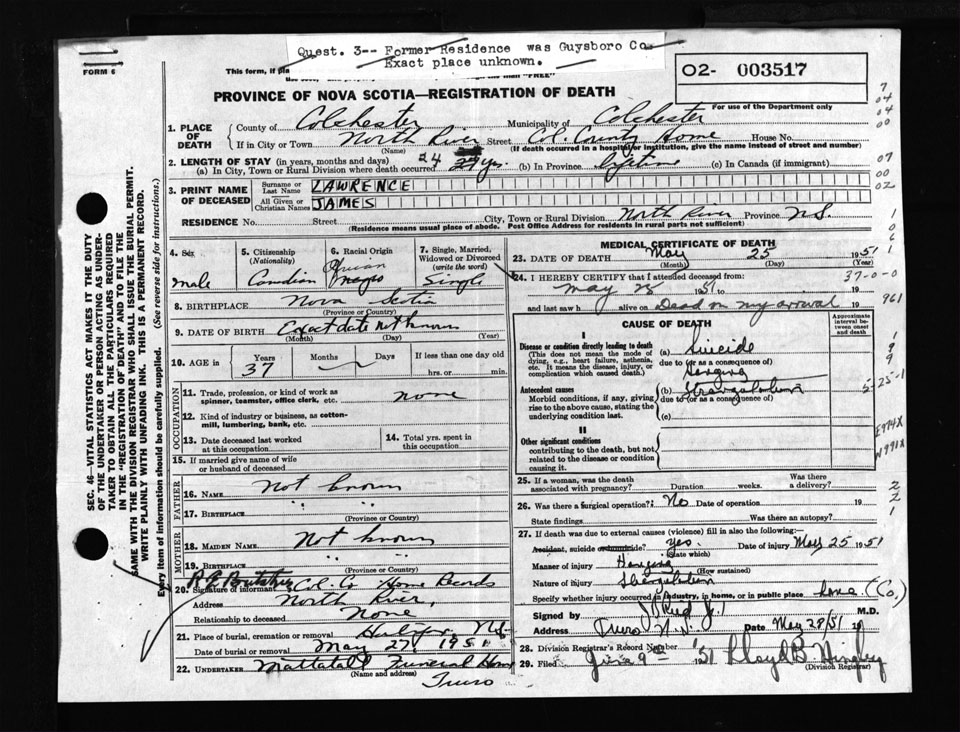 Quest. 3-- Former Residence was Guysboro Co.
Exact place unknown.
FORM 6
This form, if
"FREE"
O2- 003517
For use of the Department only
PROVINCE OF NOVA SCOTIA—REGISTRATION OF DEATH
1. PLACE OF DEATH
County of Colchester Municipality of Colchester
If in City or Town North River Street Col. County Home House No.
(Name) (If death occurred in a hospital or institution, give name instead of street and number)
2. LENGTH OF STAY (in years, months and days)
(a) In City, Town or Rural Division where death occurred 24 yrs. (b) In Province lifetime (c) In Canada (if immigrant)
3. PRINT NAME OF DECEASED
Surname or Last Name LAWRENCE
All Given or Christian Names JAMES
RESIDENCE No. Street City, Town or Rural Division North River Province N.S.
(Residence means usual place of abode. Post Office Address for residents in rural parts not sufficient)
4. Sex male
5. Citizenship (Nationality) Canadian
6. Racial Origin African Negro
7. Single, Married, Widowed or Divorced (write the word) Single
8. BIRTHPLACE Nova Scotia
(Province or Country)
9. DATE OF BIRTH Exact date not known
(Month) (Day) (Year)
10. AGE in Years 37 Months Days If less than one day old
hrs. or min.
OCCUPATION
11. Trade, profession, or kind of work as spinner, teamster, office clerk, etc. none
12. Kind of industry or business, as cotton-mill, lumbering, bank, etc.
13. Date deceased last worked at this occupation
14. Total yrs. spent in this occupation
15. If married give name of wife or husband of deceased
FATHER
16. NAME Not known
17. BIRTHPLACE " "
(Province or Country)
MOTHER
18. MAIDEN NAME Not known
19. BIRTHPLACE " "
(Province or Country)
20. Signature of informant Col. Co. Home Records
Address North River,
Relationship to deceased None
21. Place of burial, cremation or removal Halifax, N.S.
Date of burial or removal May 27, 1951
22. UNDERTAKER Mattatall Funeral Home
(Name and address)
Truro
MEDICAL CERTIFICATE OF DEATH
23. DATE OF DEATH May 25 1951
(Month) (Day) (Year)
24. I HEREBY CERTIFY that I attended deceased from:
May 25 1951 to 19
and last saw h alive on Dead on my arrival 19
CAUSE OF DEATH
Approximate interval between onset and death
I
Disease or condition directly leading to death (a) Suicide
(This does not mean the mode of dying, e.g., heart failure, asthenia, etc. It means the disease, injury, or complication which caused death.)
due to (or as a consequence of)
Hanging
Antecedent causes (b) Strangulation
Morbid conditions, if any, giving rise to the above cause, stating the underlying condition last.
due to (or as a consequence of)
(c)
II
Other significant conditions contributing to the death, but not related to the disease or condition causing it.
25. If a woman, was the death associated with pregnancy? Duration weeks. Was there a delivery?
26. Was there a surgical operation? No Date of operation 19
State findings Was there an autopsy?
27. If death was due to external causes (violence) fill in also the following:
Accident, suicide or homicide? Yes. Date of injury May 25 1951
(State which)
Manner of injury Hanging
(How sustained)
Nature of injury Strangulation
Specify whether injury occurred in industry, in home, or in public place home (Co.)
Signed by M.D.
Address Truro N.S. Date May 28/51 19
28. Division Registrar's Record Number
29. Filed June 9th '51 Lloyd B. Hingley
(Division Registrar)
SEC. 46—VITAL STATISTICS ACT MAKES IT THE DUTY
OF THE UNDERTAKER OR PERSON ACTING AS UNDER-
TAKER TO OBTAIN ALL THE PARTICULARS REQUIRED
IN THE "REGISTRATION OF DEATH" AND TO FILE THE
SAME WITH THE DIVISION REGISTRAR WHO SHALL ISSUE THE BURIAL PERMIT.
WRITE PLAINLY WITH UNFADING INK. THIS IS A PERMANENT RECORD.
Every item of information should be carefully supplied. (See reverse side for instructions.)
7
04
04
00
07
00
02
1
0
6
1
37-0-0
961
9
9
5-25-1
E974X
N991X
2
2
1